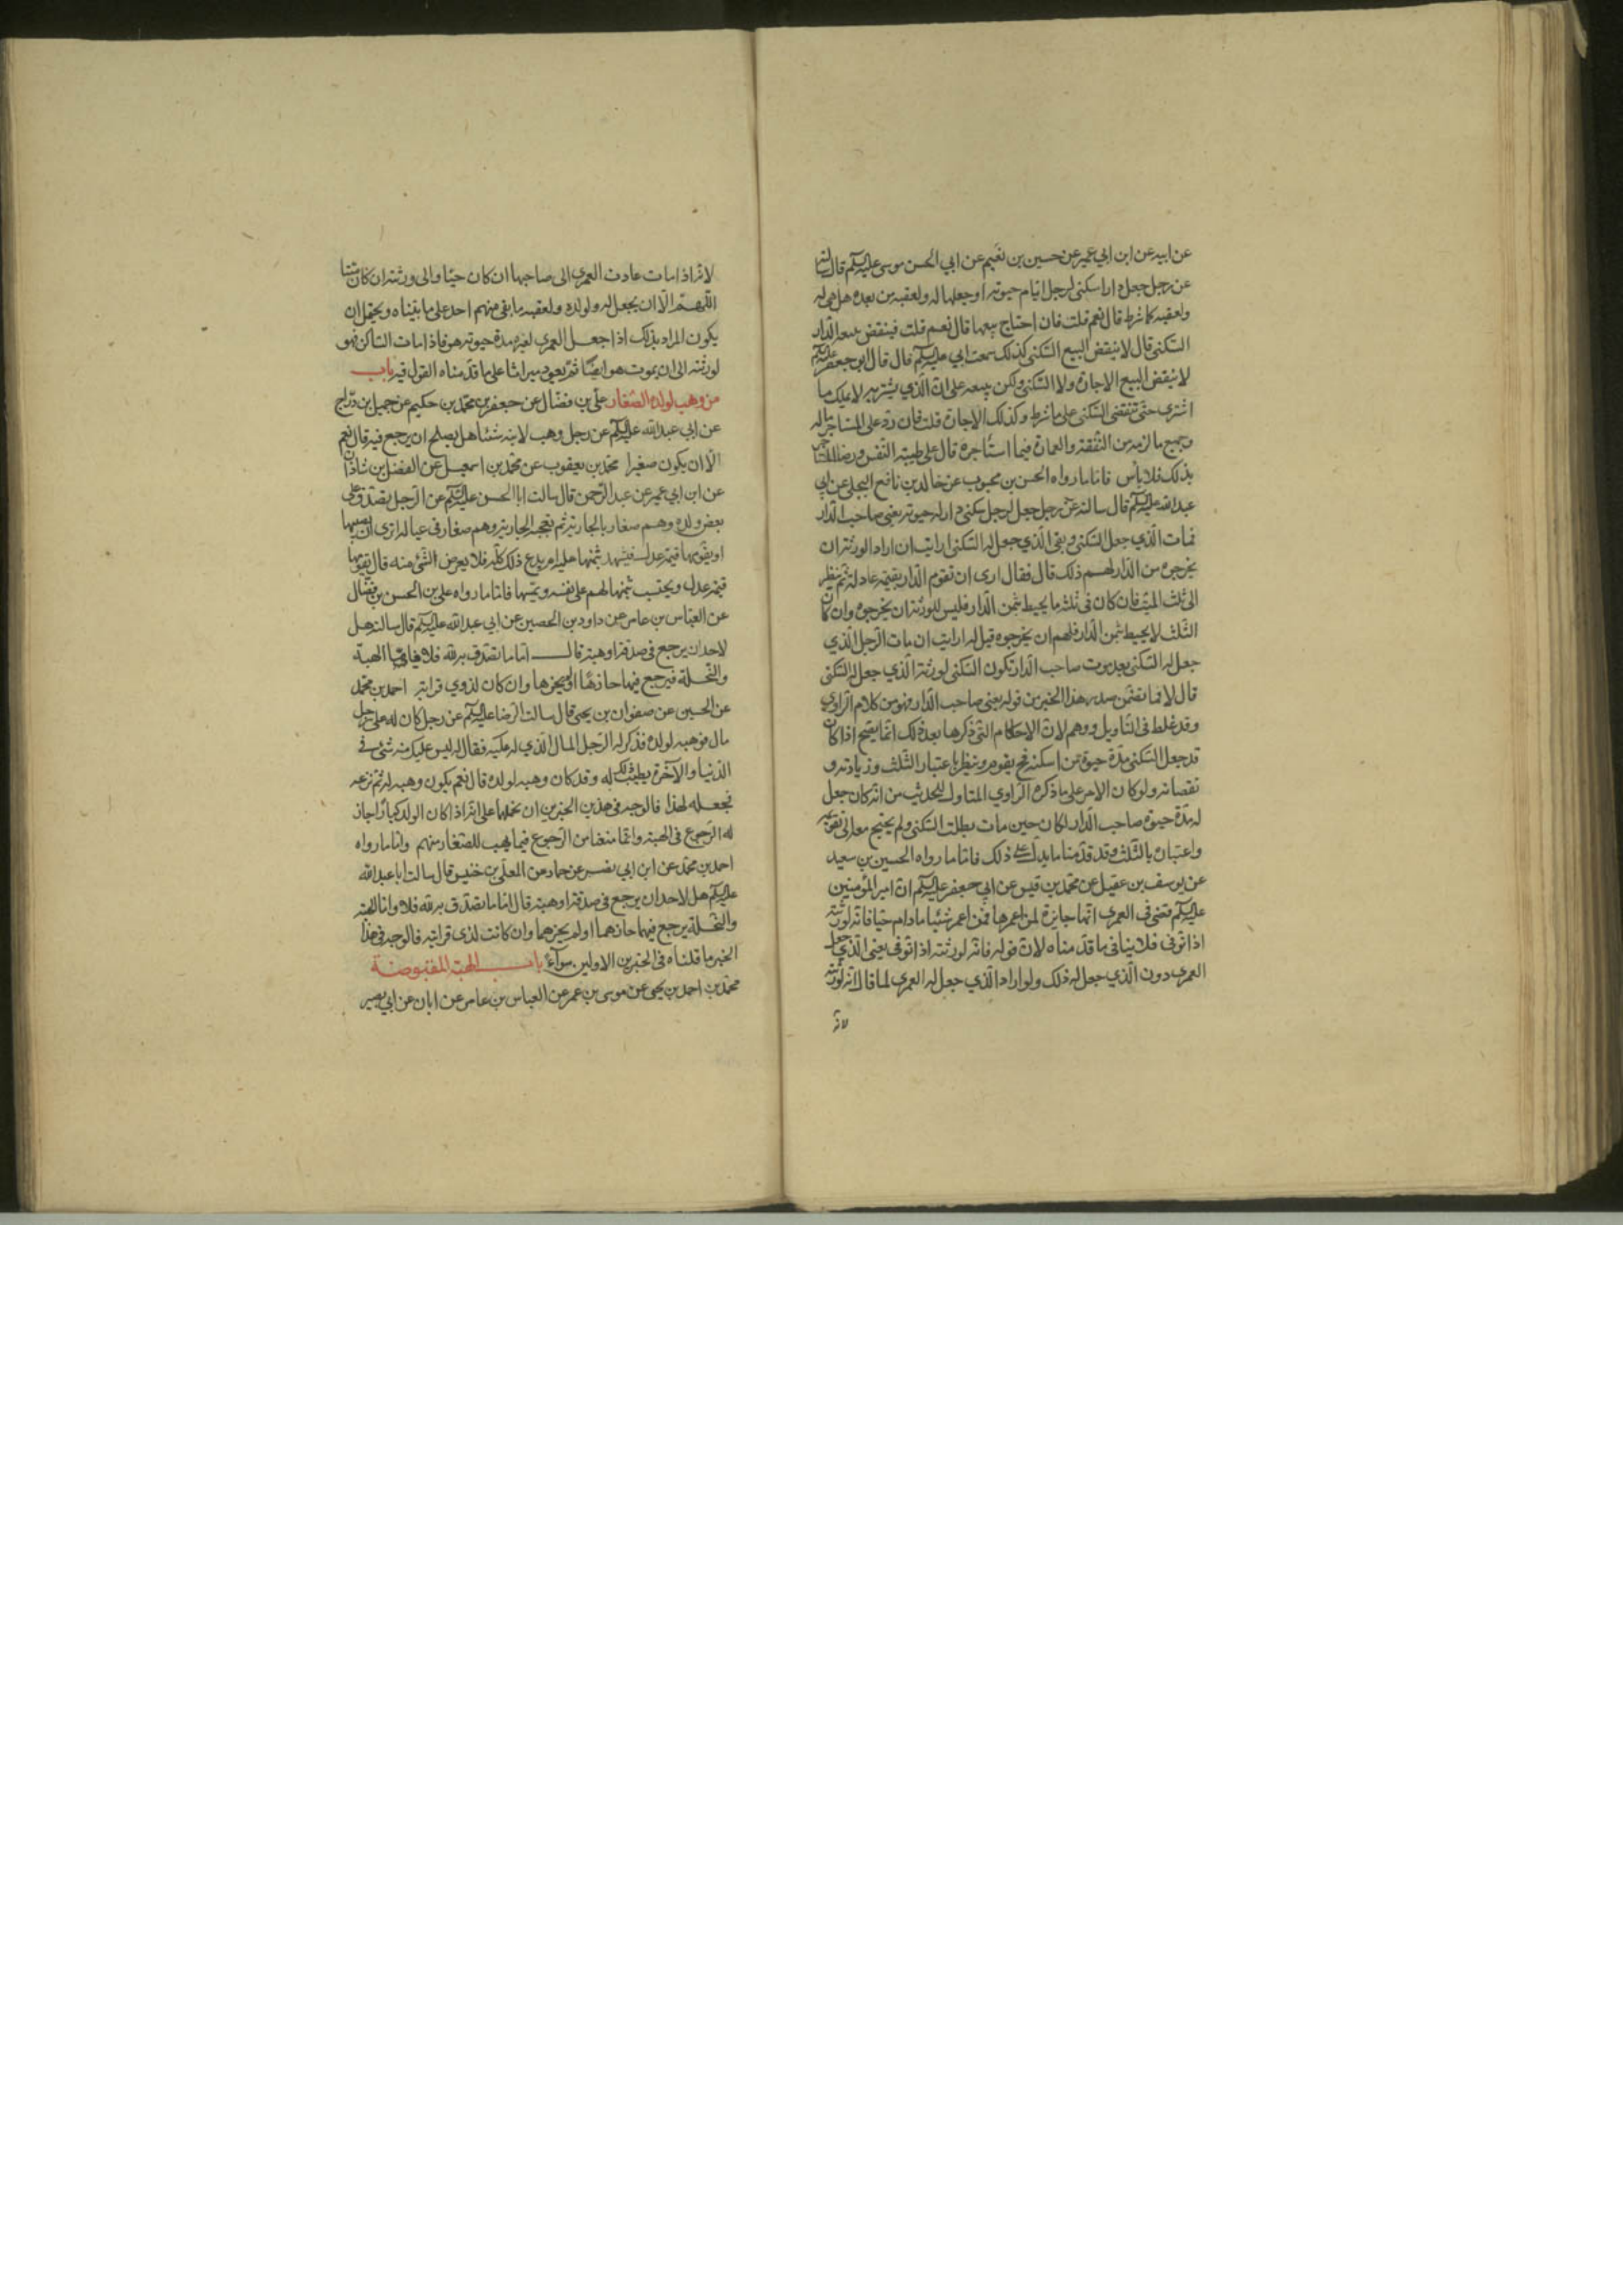 عن ابيه عن ابن ابي عمير عن حسين بن نعيم عن ابي الحسن موسى عليه السلام قال سالته
عن رجل جعل دارا سكنى لرجل ايام حيوته او جعلها له ولعقبه من بعده هل هي له
ولعقبه كما شرط قال نعم قلت فان احتاج يبيعها قال نعم قلت فينقض بيعه الدار
السكنى قال لا ينقض البيع السكنى كذلك سمعت ابي عليه السلام قال قال ابو جعفر عليه السلام
لا ينقض البيع الاجارة ولا السكنى ولكن يبيعه على ان الذي يشتريه لا يملك ما
اشترى حتى تنقضى السكنى على ما شرط وكذلك الاجارة قلت فان رد على المستاجر ماله
وجميع ما لزمه من النفقة والعمارة فيما استاجره قال على طيبة النفس ورضا المستاجر
بذلك فلا باس فاما ما رواه الحسن بن محبوب عن خالد بن نافع البجلي عن ابي
عبد الله عليه السلام قال سالته عن رجل جعل لرجل سكنى دار له حيوته يعني صاحب الدار
فمات الذي جعل السكنى وبقى الذي جعل له السكنى ارايت ان اراد الورثة ان
يخرجوه من الدار لهم ذلك قال فقال ارى ان تقوم الدار بقيمة عادلة ثم ينظر
الى ثلث الميت فان كان في ثلثه ما يحيط بثمن الدار فليس للورثة ان يخرجوه وان كان
الثلث لا يحيط بثمن الدار فلهم ان يخرجوه قيل له ارايت ان مات الرجل الذي
جعل له السكنى بعد موت صاحب الدار تكون السكنى لورثة الذي جعل له السكنى
قال لا فما تضمن صدر هذا الخبر من قوله يعني صاحب الدار فهو من كلام الراوي
وقد غلط في التاويل ووهم لان الاحكام التي ذكرها بعد ذلك انما يصح اذا كان
قد جعل السكنى مدة حيوة من اسكنه فح يقوم وينظر باعتبار الثلث وزيادته و
نقصانه ولو كان الامر على ما ذكره الراوي المتاول للحديث من انه كان جعل
له مدة حيوة صاحب الدار لكان حين مات بطلت السكنى ولم يحتج معه الى تقويمه
واعتباره بالثلث وقد قدمنا ما يدل على ذلك فاما ما رواه الحسين بن سعيد
عن يوسف بن عقيل عن محمد بن قيس عن ابي جعفر عليه السلام ان امير المؤمنين
عليه السلام قضى في العمرى انها جايزة لمن اعمرها فمن اعمر شيئا ما دام حيا فانه لورثته
اذا توفى فلا ينافي ما قدمناه لان قوله فانه لورثته اذا توفى يعني الذي جعل
العمرى دون الذي جعل له ذلك ولو اراد الذي جعل له العمرى لما قال لانه لورثته
لانه
لانه اذا مات عادت العمرى الى صاحبها ان كان حيا والى ورثته ان كان ميتا
اللهم الا ان يجعل له ولولده ولعقبه ما بقى منهم احد على ما بيناه ويحتمل ان
يكون المراد بذلك اذا جعل العمرى لغيره مدة حيوته هو فاذا مات الساكن فهو
لورثته الى ان يموت هو ايضا ثم يعود ميراثا على ما قدمناه القول فيه باب
من وهب لولده الصغار علي بن فضال عن جعفر بن محمد بن حكيم عن جميل بن دراج
عن ابي عبد الله عليه السلام عن رجل وهب لابنه شيئا هل يصلح ان يرجع فيه قال نعم
الا ان يكون صغيرا محمد بن يعقوب عن محمد بن اسمعيل عن الفضل بن شاذان
عن ابن ابي عمير عن عبد الرحمن قال سالت ابا الحسن عليه السلام عن الرجل يتصدق على
بعض ولده وهم صغار بالجارية ثم تعجبه الجارية وهم صغار في عياله اترى ان يصيبها
او يقومها قيمة عدل فيشهد بثمنها عليه ام يدع ذلك كله فلا يعرض لشئ منه قال يقومها
قيمة عدل ويحتسب بثمنها لهم على نفسه ويمسها فاما ما رواه علي بن الحسن بن فضال
عن العباس بن عامر عن داود بن الحصين عن ابي عبد الله عليه السلام قال سالته هل
لاحد ان يرجع في صدقة او هبة قال اما ما تصدق به لله فلا واما الهبة
والنحلة فيرجع فيها حازها او لم يحزها وان كان لذوي قرابة احمد بن محمد
عن الحسين عن صفوان بن يحيى قال سالت الرضا عليه السلام عن رجل كان له على رجل
مال فوهبه لولده فذكر له الرجل المال الذي له عليه فقال له ليس عليك منه شئ في
الدنيا والآخرة يطيب ذلك له وقد كان وهبه لولده قال نعم يكون وهبه له ثم نزعه
فجعله لهذا فالوجه في هذين الخبرين ان نحملها على انه اذا كان الولد كبارا جاز
له الرجوع في الهبة وانما منعنا من الرجوع فيما يهب للصغار منهم واما ما رواه
احمد بن محمد عن ابن ابي نصر عن حماد عن المعلى بن خنيس قال سالت ابا عبد الله
عليه السلام هل لاحد ان يرجع في صدقة او هبة قال اما ما تصدق به لله فلا واما الهبة
والنحلة يرجع فيهما حازهما او لم يحزهما وان كانت لذى قرابة فالوجه في هذا
الخبر ما قلناه في الخبرين الاولين سواء باب الهبة المقبوضة
محمد بن احمد بن يحيى عن موسى بن عمر عن العباس بن عامر عن ابان عن ابي بصير